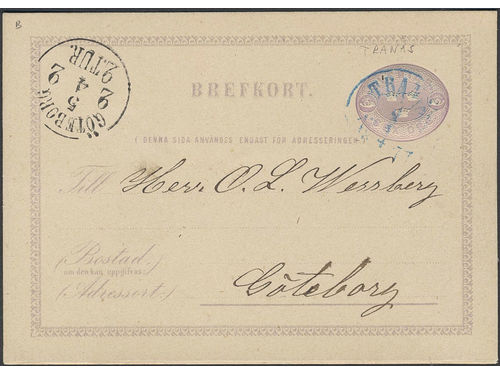 B
TRANÅS
GÖTEBORG
2
5
4
2
2.TUR.
BREFKORT.
TRAN
( DENNA SIDA ANVÄNDES ENDAST FÖR ADRESSERINGEN.)
Till Herr O. L. Wessberg
(Bostad.
om den kan uppgifvas:
(Adressort.) Göteborg